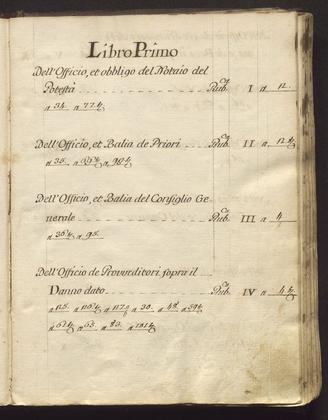 Libro Primo
Dell'Officio, et obbligo del Notaio del
Potestà Rub.ca I a 12.
a 34. a 77.
Dell'Officio, et Balìa de Priori Rub.ca II a 12
a 35. a 90
Dell'Officio, et Balìa del Consiglio Ge
nerale Rub.ca III a 4
a 36 a 95.
Dell'Officio de Provveditori sopra il
Danno dato Rub.ca IV a 4
a 115. a 116 a 117 a 30. a 48 a 59
a 62 a 63. a 83. a 101